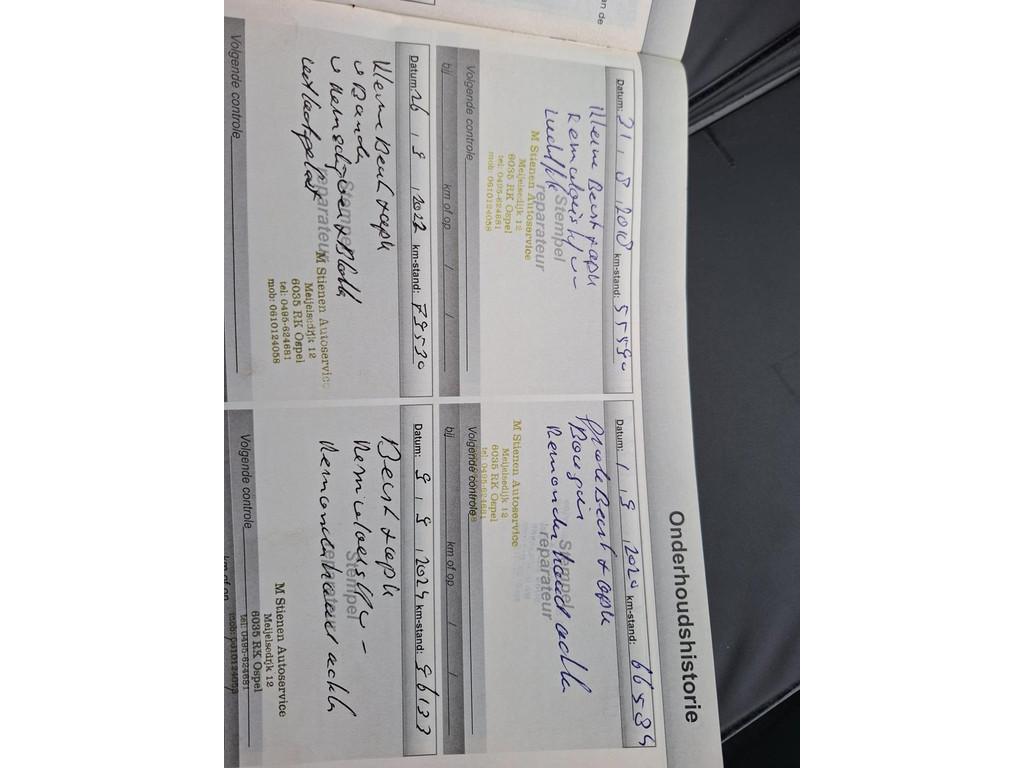 an de
Onderhoudshistorie
Datum: 31, 8, 2018 km-stand: 55590
Kleine Beurt + apk
Remvloeistof v-
Luchtfilt
Stempel
reparateur
M Stienen Autoservice
Meijelsedijk 12
6035 RK Ospel
tel: 0495-624681
mob: 0610124058
Volgende controle
bij km of op / /
Datum: 1, 9, 2020 km-stand: 66584
Grote Beurt + apk
Bougies
Remonderhoud achter
Stempel
reparateur
M Stienen Autoservice
Meijelsedijk 12
6035 RK Ospel
tel: 0495-624681
Volgende controle
bij km of op / /
Datum: 26, 9, 2022 km-stand: 79530
Kleine Beurt + apk
Banden
Remschijven + Blokk
Stempel
reparateur
M Stienen Autoservice
Meijelsedijk 12
6035 RK Ospel
tel: 0495-624681
mob: 0610124058
Volgende controle
Datum: 9, 9, 2024 km-stand: 96133
Beurt + apk
Remvloeistof v-
Remonderhoud achter
Stempel
reparateur
M Stienen Autoservice
Meijelsedijk 12
6035 RK Ospel
tel: 0495-624681
mob: 0610124058
Volgende controle
km of op